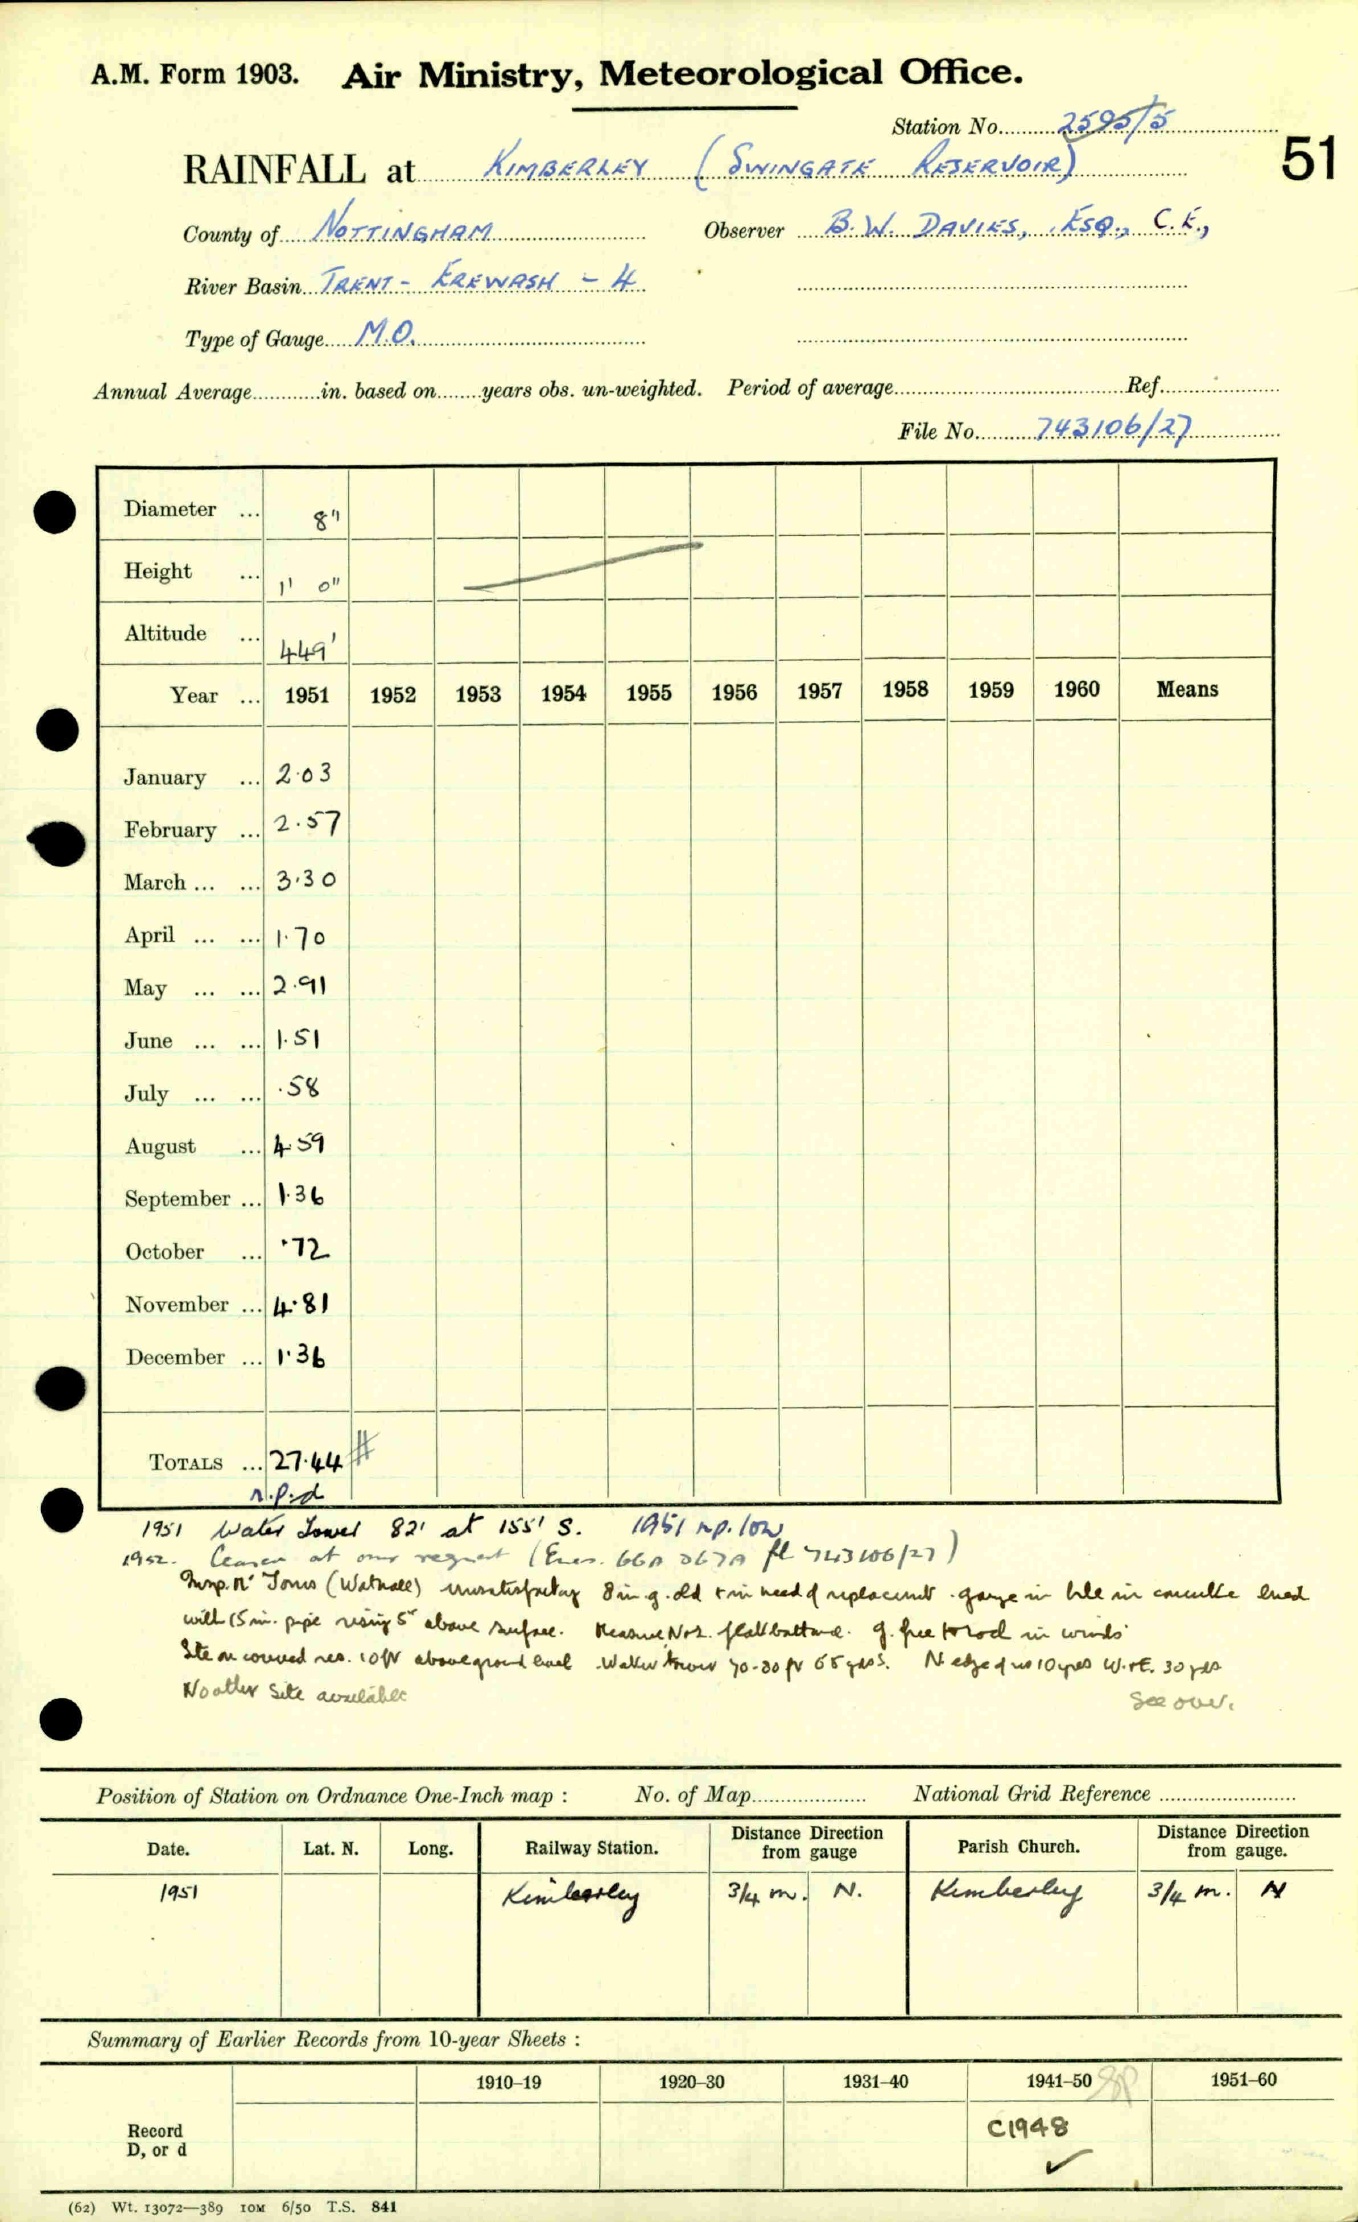 A.M. Form 1903. Air Ministry, Meteorological Office.
Station No. 2595/5
51
RAINFALL at KIMBERLEY (SWINGATE RESERVOIR)
County of NOTTINGHAM Observer B.W. DAVIES, ESQ., C.E.,
River Basin TRENT - EREWASH - 4
Type of Gauge M.O.
Annual Average in. based on years obs. un-weighted. Period of average Ref.
File No. 743106/27
Diameter ... 8"
Height ... 1' 0"
Altitude ... 449'
Year ... 1951 1952 1953 1954 1955 1956 1957 1958 1959 1960 Means
January ... 2.03
February ... 2.57
March ... ... 3.30
April ... ... 1.70
May ... ... 2.91
June ... ... 1.51
July ... ... .58
August ... 4.59
September ... 1.36
October ... .72
November ... 4.81
December ... 1.36
TOTALS ... 27.44 #
n.p.d
1951 Water Tower 82' at 155' S. 1951 n.p. low
1952. Ceased at our request (Encs. 66A 67A fl 743106/27)
Insp. Mr Jones (Watnall) unsatisfactory 8 in g. old & in need of replacement . gauge in hole in concrete lined
with 15 in. pipe rising 5" above surface. Measure No2. flat bottomed. g. free to rock in winds
Site on covered res. 10 ft above ground level . Water tower 70-80 ft 55 yds S. N edge of res 10 yds W. & E. 30 yds
No other site available
See over.
Position of Station on Ordnance One-Inch map : No. of Map National Grid Reference
Date. Lat. N. Long. Railway Station. Distance Direction from gauge Parish Church. Distance Direction from gauge.
1951 Kimberley 3/4 m. N. Kimberley 3/4 m. N
Summary of Earlier Records from 10-year Sheets :
1910–19 1920–30 1931–40 1941–50 1951–60
Record D, or d C1948 ✓
(62) Wt. 13072—389 10M 6/50 T.S. 841